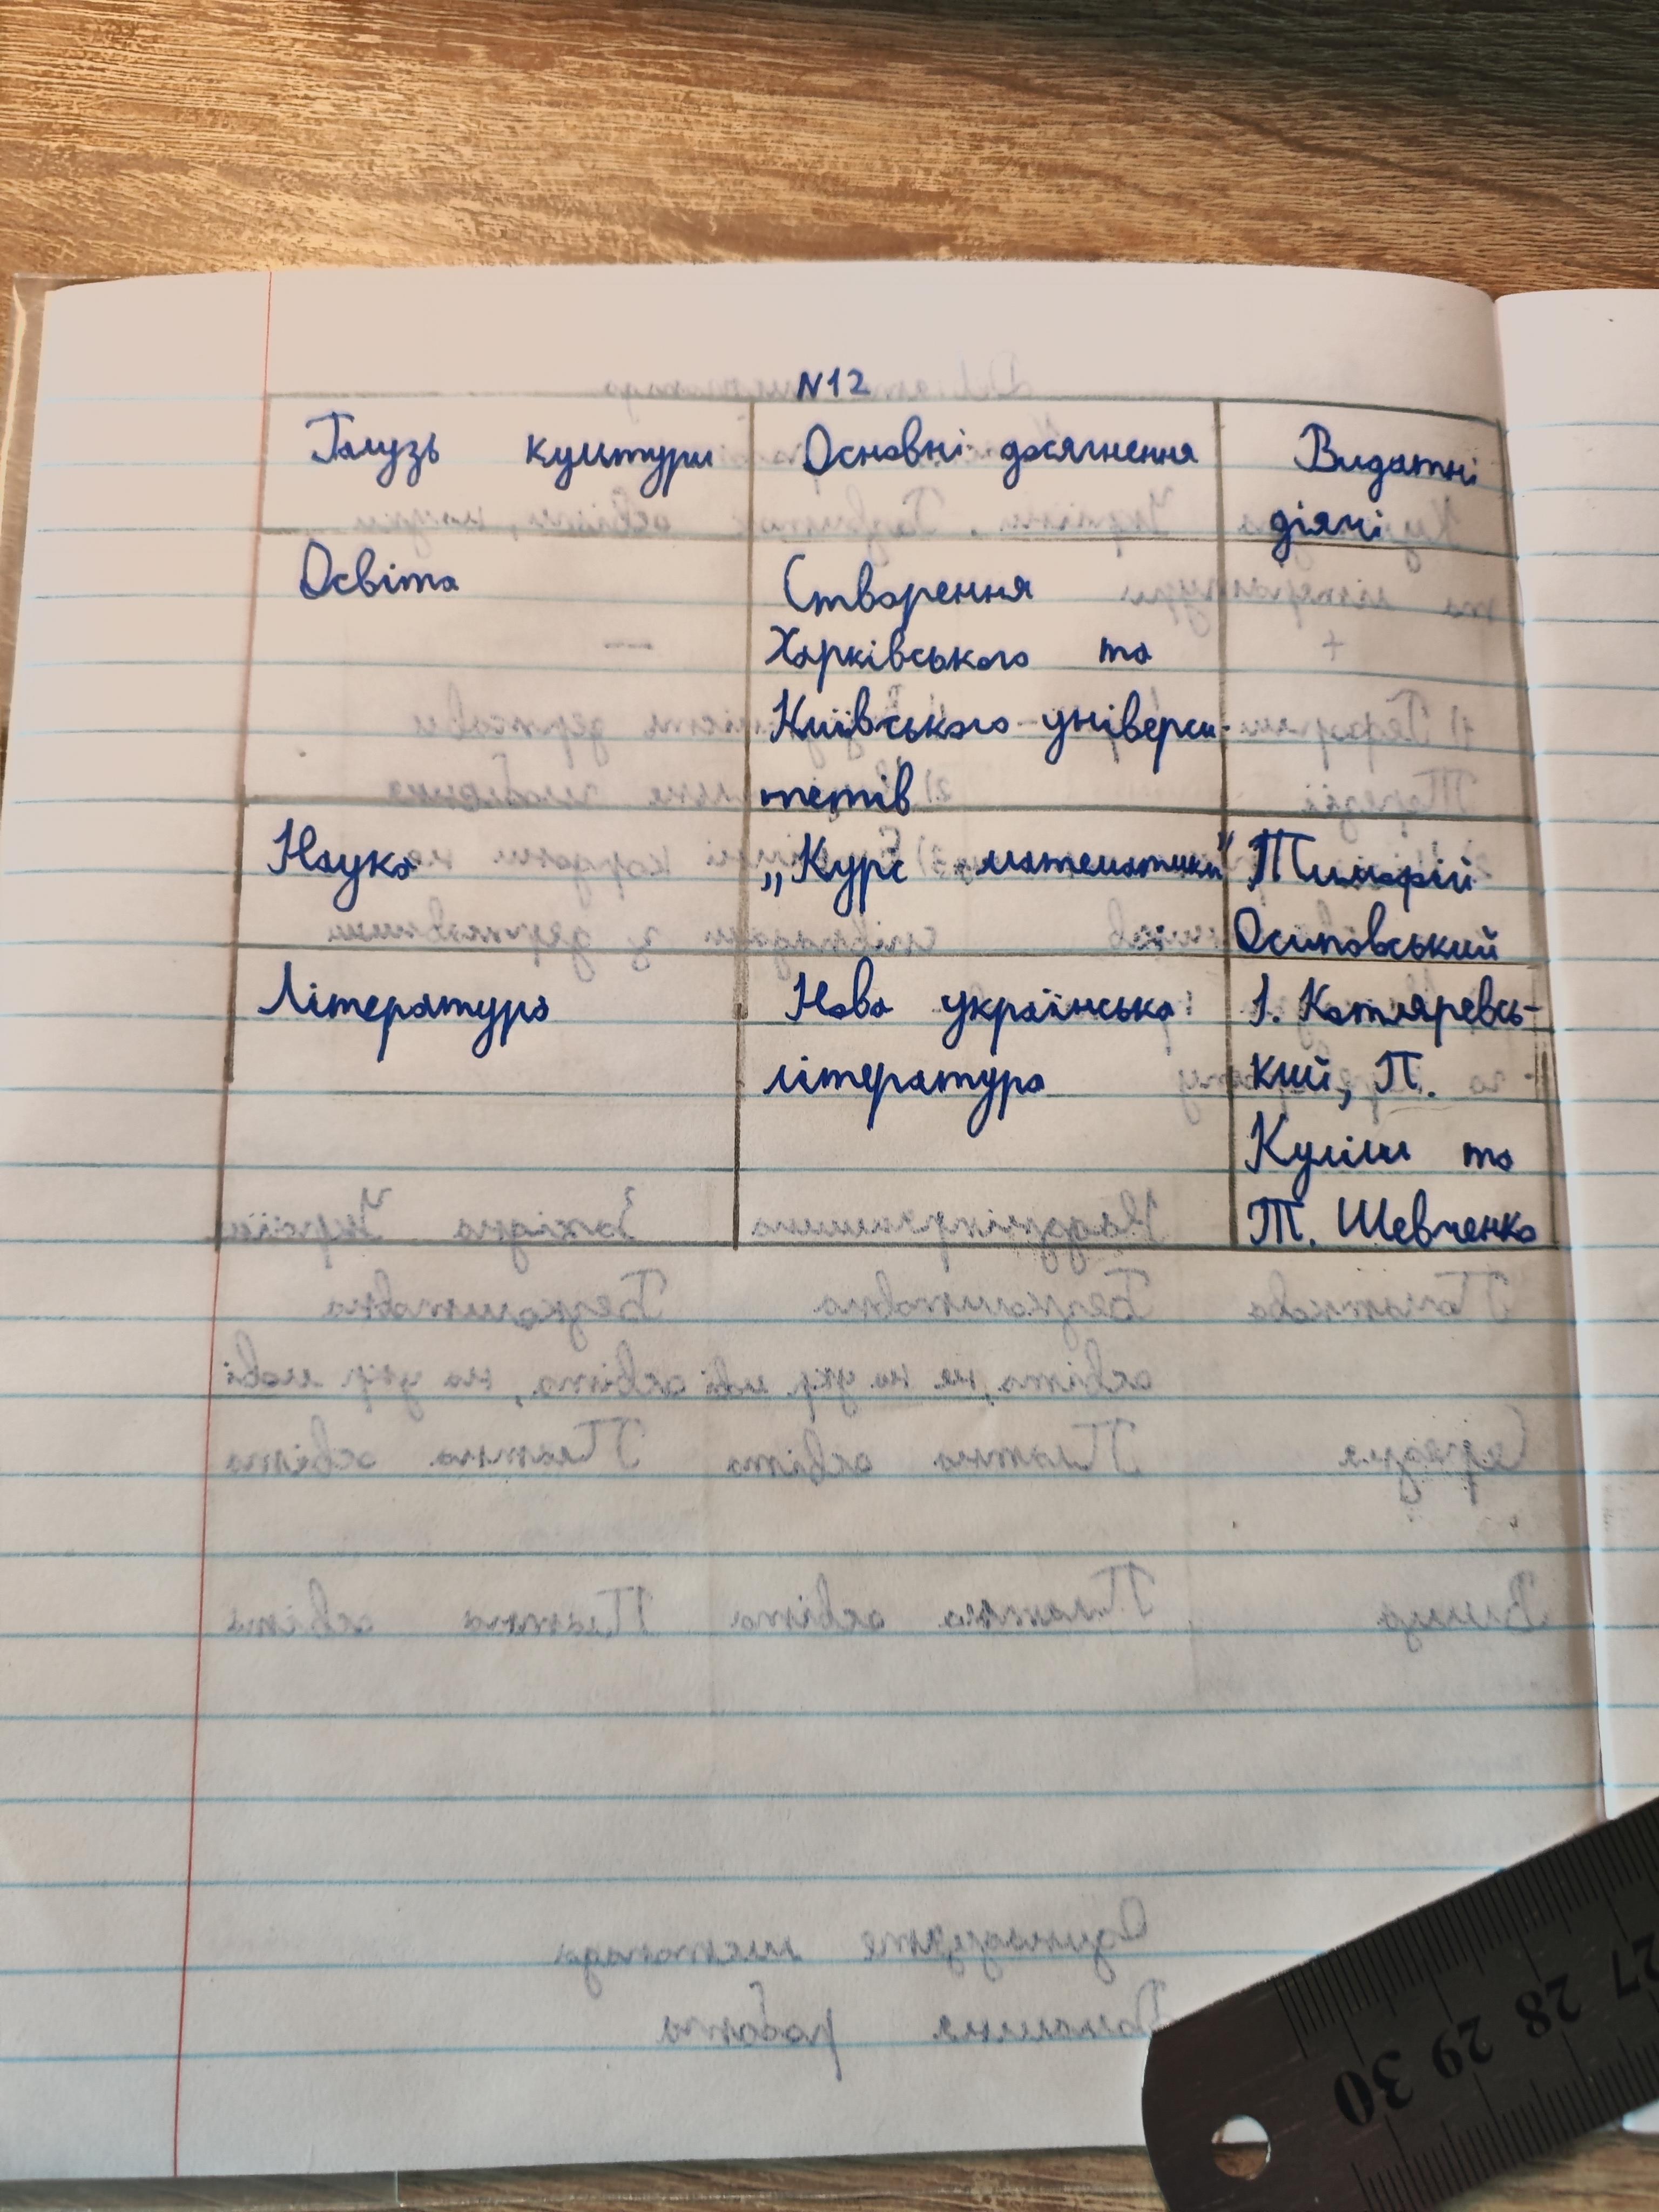 N12
Галузь культури Основні досягнення Видатні
діячі
Освіта Створення
Харківського та
Київського універси-
тетів
Наука „Курс математики" Тимофій
Осиповський
Література Нова українська І. Котляревсь-
література кий, П.
Куліш та
Т. Шевченко
30 29 28 27